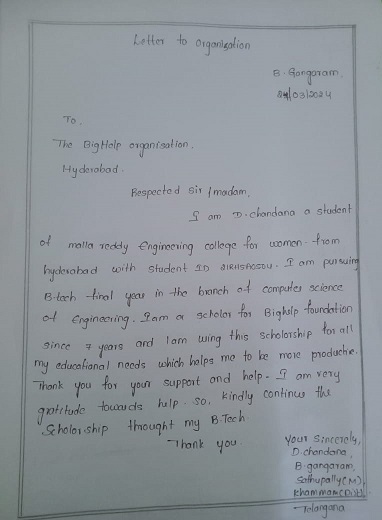 Letter to Organization
B. Gangaram
24/03/2024
To,
The BigHelp organisation,
Hyderabad.
Respected sir/madam,
I am D.chandana a student
of malla reddy Engineering college for women from
hyderabad with student ID
. I am pursuing
B.tech final year in the branch of computer science
of Engineering. I am a scholar for Bighelp foundation
since 7 years and I am using this scholorship for all
my educational needs which helps me to be more productive.
Thank you for your support and help. I am very
gratitude towards help. so, kindly continue the
Scholorship throught my B.Tech
Thank you.
Your Sincerely,
D.chandana,
B.gangaram,
Sathupally(M),
Khammam(Dist),
Telangana